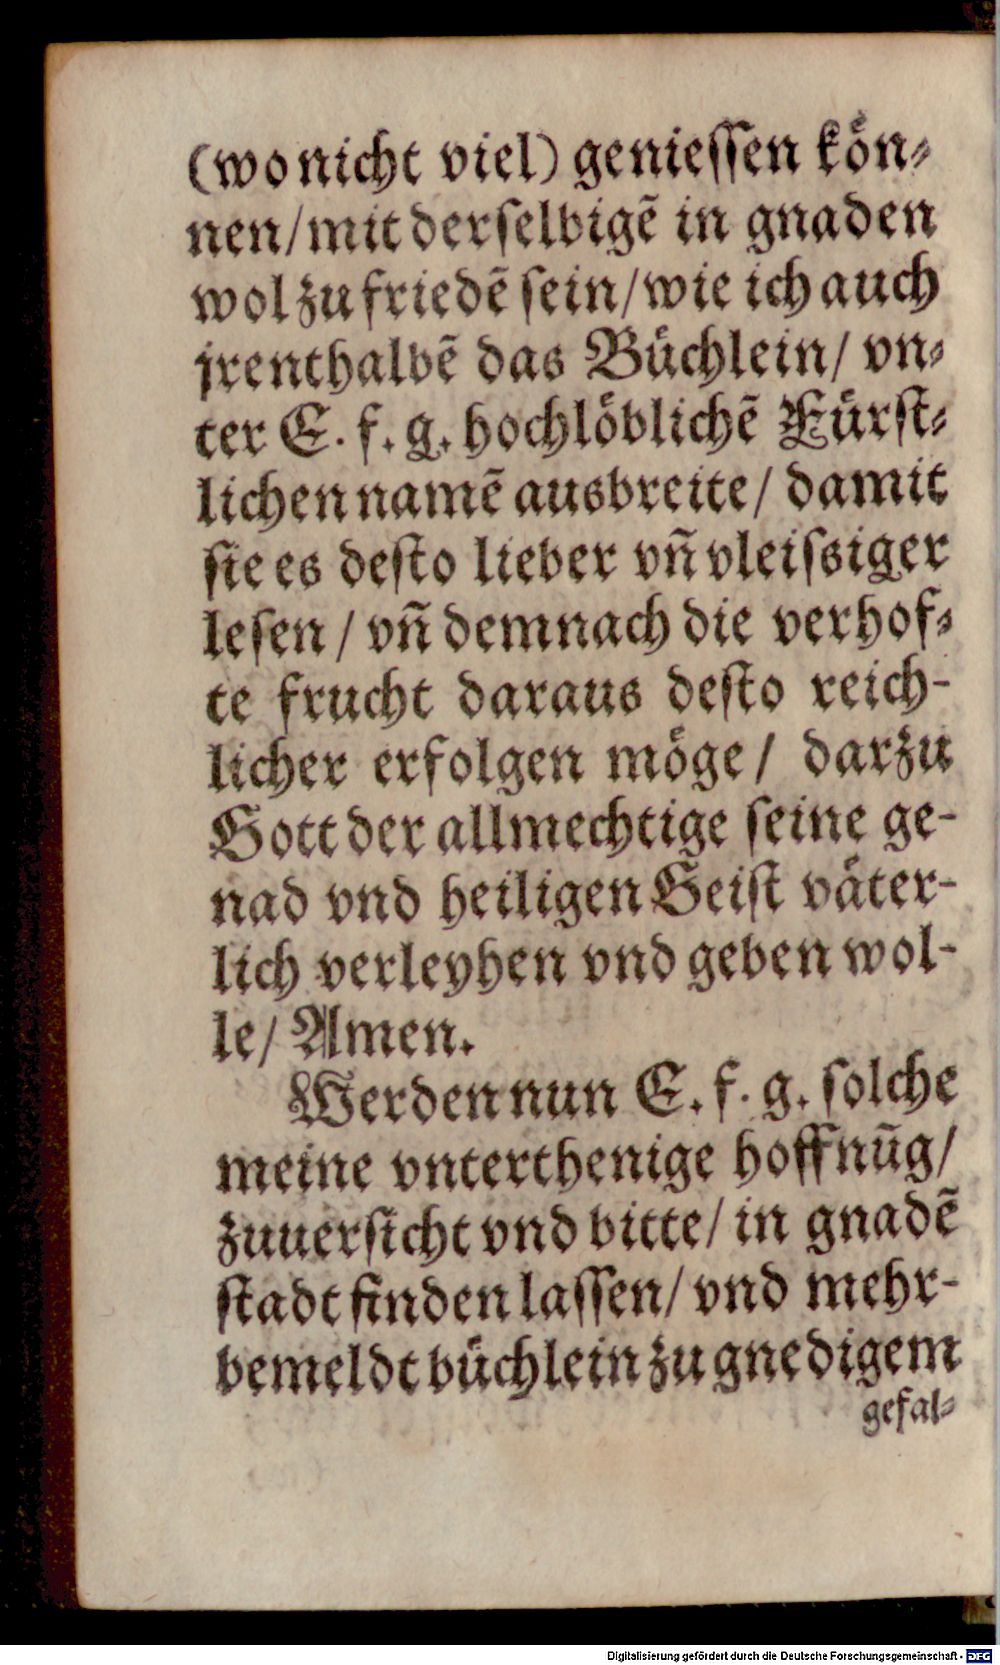 (wo nicht viel) genieſſen koͤn⸗
nen/mit derſelbigē in gnaden
wol zu friedē ſein/wie ich auch
jrenthalbē das Buͤchlein/ vn⸗
ter E. f. g. hochloͤblichē Fuͤrſt⸗
lichen namē ausbreite/ damit
ſie es deſto lieber vn̄ vleiſsiger
leſen / vn̄ demnach die verhof⸗
te frucht daraus deſto reich-
licher erfolgen moͤge / darzu
Gott der allmechtige ſeine ge-
nad vnd heiligen Geiſt vaͤter-
lich verleyhen vnd geben wol-
le/ Amen.
Werden nun E. f. g. ſolche
meine vnterthenige hoffnūg/
zuuerſicht vnd bitte/ in gnadē
ſtadt finden laſſen/ vnd mehr-
bemeldt buͤchlein zu gnedigem
gefal⸗
Digitalisierung gefördert durch die Deutsche Forschungsgemeinschaft - DFG